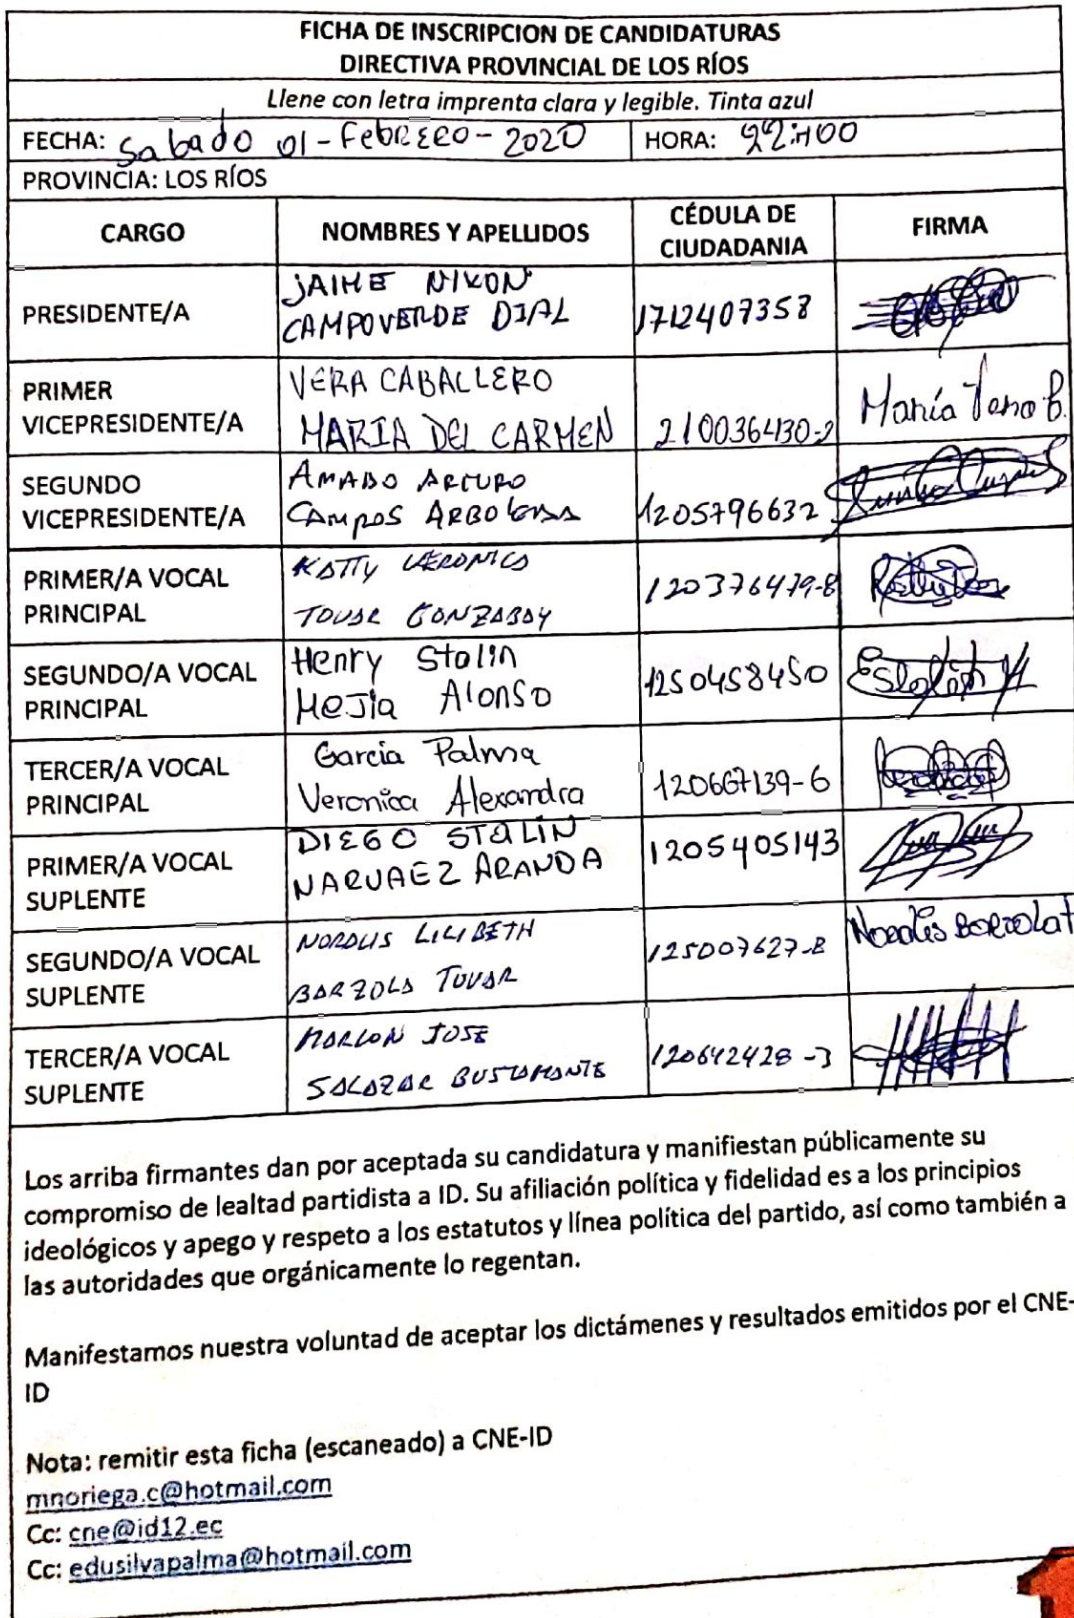 FICHA DE INSCRIPCION DE CANDIDATURAS
DIRECTIVA PROVINCIAL DE LOS RÍOS
Llene con letra imprenta clara y legible. Tinta azul
FECHA: Sabado 01-FebRERO-2020 HORA: 22:H00
PROVINCIA: LOS RÍOS
CARGO NOMBRES Y APELLIDOS CÉDULA DE CIUDADANIA FIRMA
PRESIDENTE/A
JAIME NIXON
CAMPOVERDE DIAL 1712407358
PRIMER VICEPRESIDENTE/A
VERA CABALLERO
MARIA DEL CARMEN 210036430-2 María
SEGUNDO VICEPRESIDENTE/A
AMADO ARTURO
CAMPOS ARBOLEDA 1205796632
PRIMER/A VOCAL PRINCIPAL
KATTY VERONICA
TOVAR GONZABAY 120376479-8
SEGUNDO/A VOCAL PRINCIPAL
Henry Stalin
MeJia Alonso 1250458450
TERCER/A VOCAL PRINCIPAL
Garcia Palma
Veronica Alexandra 120667139-6
PRIMER/A VOCAL SUPLENTE
DIEGO STALIN
NARVAEZ ARANDA 1205405143
SEGUNDO/A VOCAL SUPLENTE
NORALIS LILIBETH
BARZOLA TOVAR 125007627-8 Noralis Barzola t
TERCER/A VOCAL SUPLENTE
MARLON JOSE
SALAZAR BUSTAMANTE 120642428-3
Los arriba firmantes dan por aceptada su candidatura y manifiestan públicamente su
compromiso de lealtad partidista a ID. Su afiliación política y fidelidad es a los principios
ideológicos y apego y respeto a los estatutos y línea política del partido, así como también a
las autoridades que orgánicamente lo regentan.
Manifestamos nuestra voluntad de aceptar los dictámenes y resultados emitidos por el CNE-
ID
Nota: remitir esta ficha (escaneado) a CNE-ID
mnoriega.c@hotmail.com
Cc: cne@id12.ec
Cc: edusilvapalma@hotmail.com